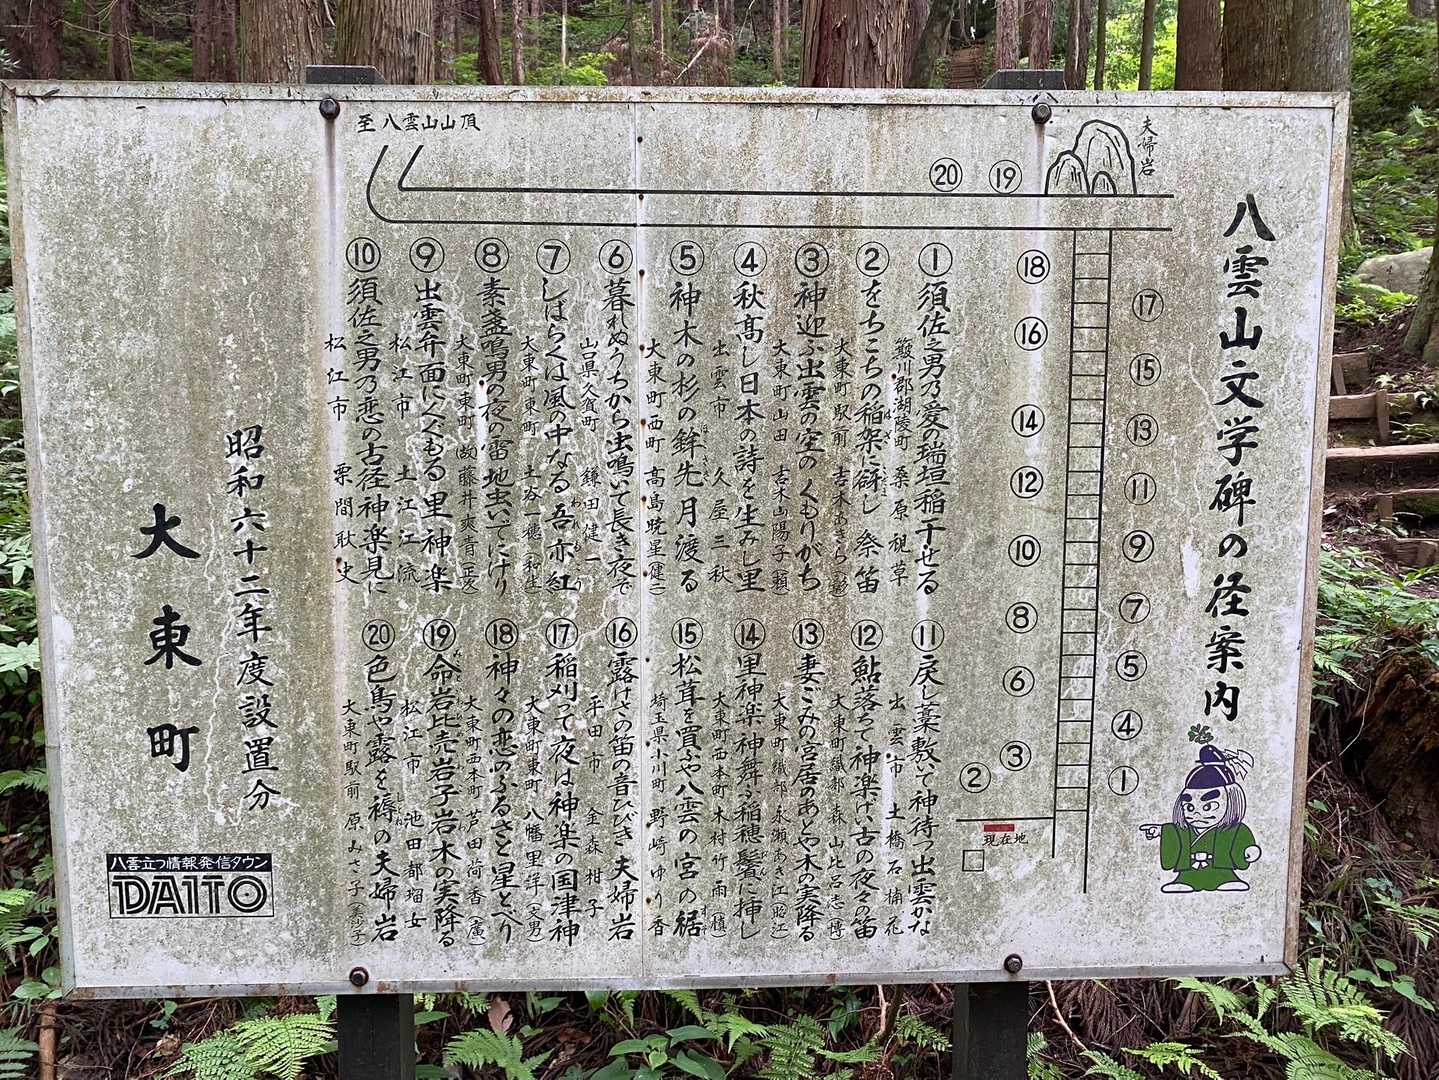 八雲山文学碑の径案内
至 八雲山山頂
夫婦岩
⑳ ⑲
⑱
⑰
⑯
⑮
⑭
⑬
⑫
⑪
⑩
⑨
⑧
⑦
⑥
⑤
④
③
②
①
現在地
①須佐之男乃愛の瑞垣稲干せる
簸川郡湖陵町 桑原視草
②をちこちの稲架に谺し祭笛
はざ
こだま
大東町駅前 吉木あきら
③神迎ふ出雲の空のくもりがち
大東町山田 吉木山陽子
④秋高し日本の詩を生みし里
出雲市 久屋三秋
⑤神木の杉の鉾先月渡る
ほこさき
大東町西町 高島暁星(健一)
⑥暮れぬうちから虫鳴いて長き夜で
山口県久賀町 鎌田健一
⑦しばらくは風の中なる吾亦紅
われもこう
大東町東町 土谷一穂(和生)
⑧素盞嗚男の夜の雷地虫いでにけり
大東町東町 (故)藤井爽青(正文)
⑨出雲弁面にくぐもる里神楽
松江市 土江江流
⑩須佐之男乃恋の古径神楽見に
松江市 栗間耿史
⑪戻し藁敷いて神待つ出雲かな
出雲市 土橋石楠花
⑫鮎落ちて神楽げい古の夜々の笛
大東町織部 森山比呂志
⑬妻ごみの宮居のあとや木の実降る
大東町織部 永瀬あき江(昭江)
⑭里神楽神舞ふ稲穂鬢に挿し
びん
大東町西本町 木村竹雨
⑮松茸を買ふや八雲の宮の裾
すそ
埼玉県小川町 野崎ゆり香
⑯露けさの笛の音ひびき夫婦岩
平田市 金森柑子
⑰稲刈って夜は神楽の国津神
大東町東町 八幡里洋(文男)
⑱神々の恋のふるさと星とべり
大東町西本町 芦田荷香(廣)
⑲命岩比売岩子岩木の実降る
松江市 池田都瑠女
⑳色鳥や露を褥の夫婦岩
しとね
大東町駅前 原みさ子(美沙子)
昭和六十二年度設置分
大東町
八雲立つ情報発信タウン
DAITO